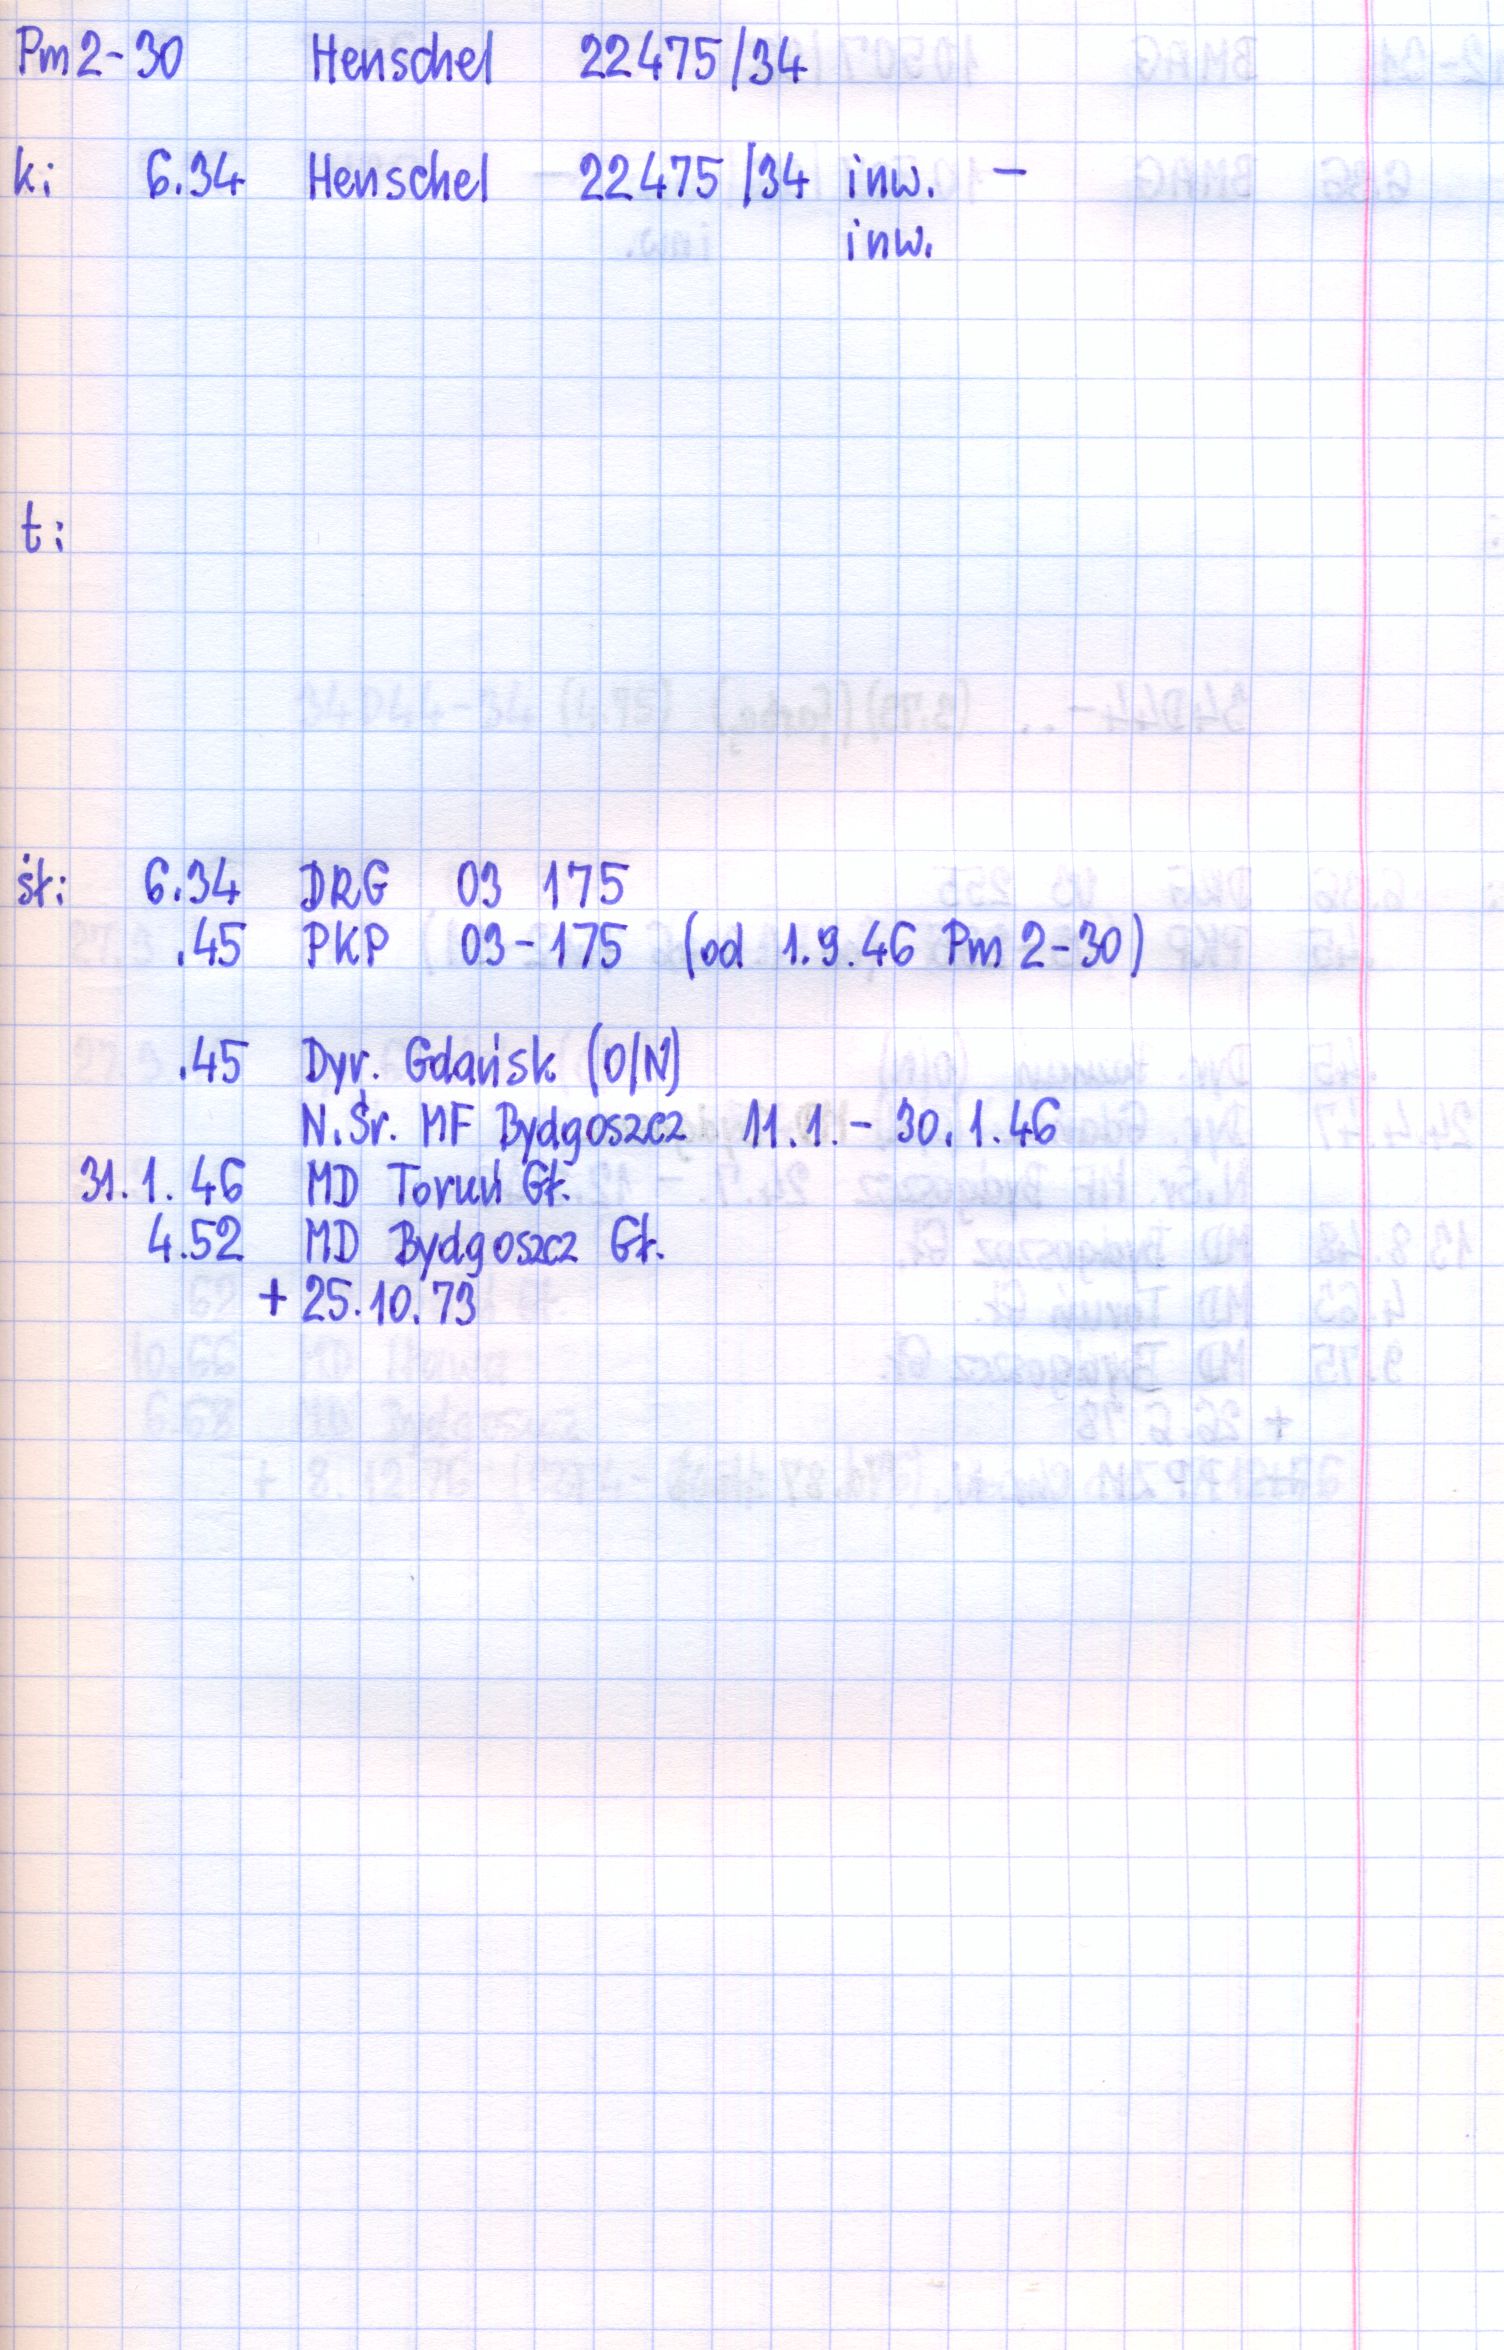 Pm2-30 Henschel 22475/34
k: 6.34 Henschel 22475/34 inw. -
inw.
t:
śł: 6.34 DRG 03 175
.45 PKP 03-175 (od 1.9.46 Pm 2-30)
.45 Dyr. Gdańsk (O/N)
N.Śr. MF Bydgoszcz 11.1. - 30.1.46
31.1.46 MD Toruń Gł.
4.52 MD Bydgoszcz Gł.
+ 25.10.73